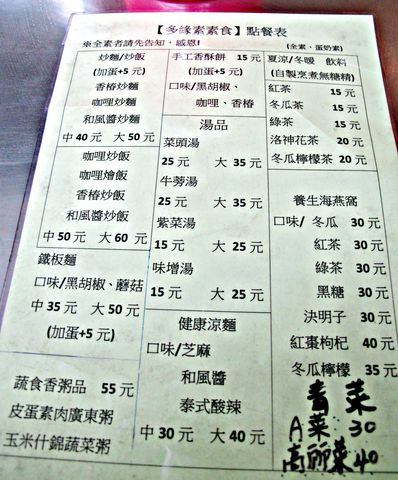 【多緣素素食】點餐表
※全素者請先告知，感恩!
(全素、蛋奶素)
炒麵/炒飯
(加蛋+5元)
香椿炒麵
咖哩炒麵
和風醬炒麵
中 40元 大 50元
咖哩炒飯
咖哩燴飯
香椿炒飯
和風醬炒飯
中 50元 大 60 元
鐵板麵
口味/黑胡椒、蘑菇
中 35元 大 50元
(加蛋+5元)
蔬食香粥品 55元
皮蛋素肉廣東粥
玉米什錦蔬菜粥
手工香酥餅 15元
(加蛋+5元)
口味/黑胡椒、
咖哩、香椿
湯品
菜頭湯
25元 大 35元
牛蒡湯
25元 大 35元
紫菜湯
15元 大 25元
味增湯
15元 大 25元
健康涼麵
口味/芝麻
和風醬
泰式酸辣
中 30元 大 40元
夏涼/冬暖 飲料
(自製烹煮無糖精)
紅茶 15元
冬瓜茶 15元
綠茶 15元
洛神花茶 20元
冬瓜檸檬茶 20元
養生海燕窩
口味/ 冬瓜 30元
紅茶 30元
綠茶 30元
黑糖 30元
決明子 30元
紅棗枸杞 40元
冬瓜檸檬 35元
青菜
A菜 30
高麗菜 40